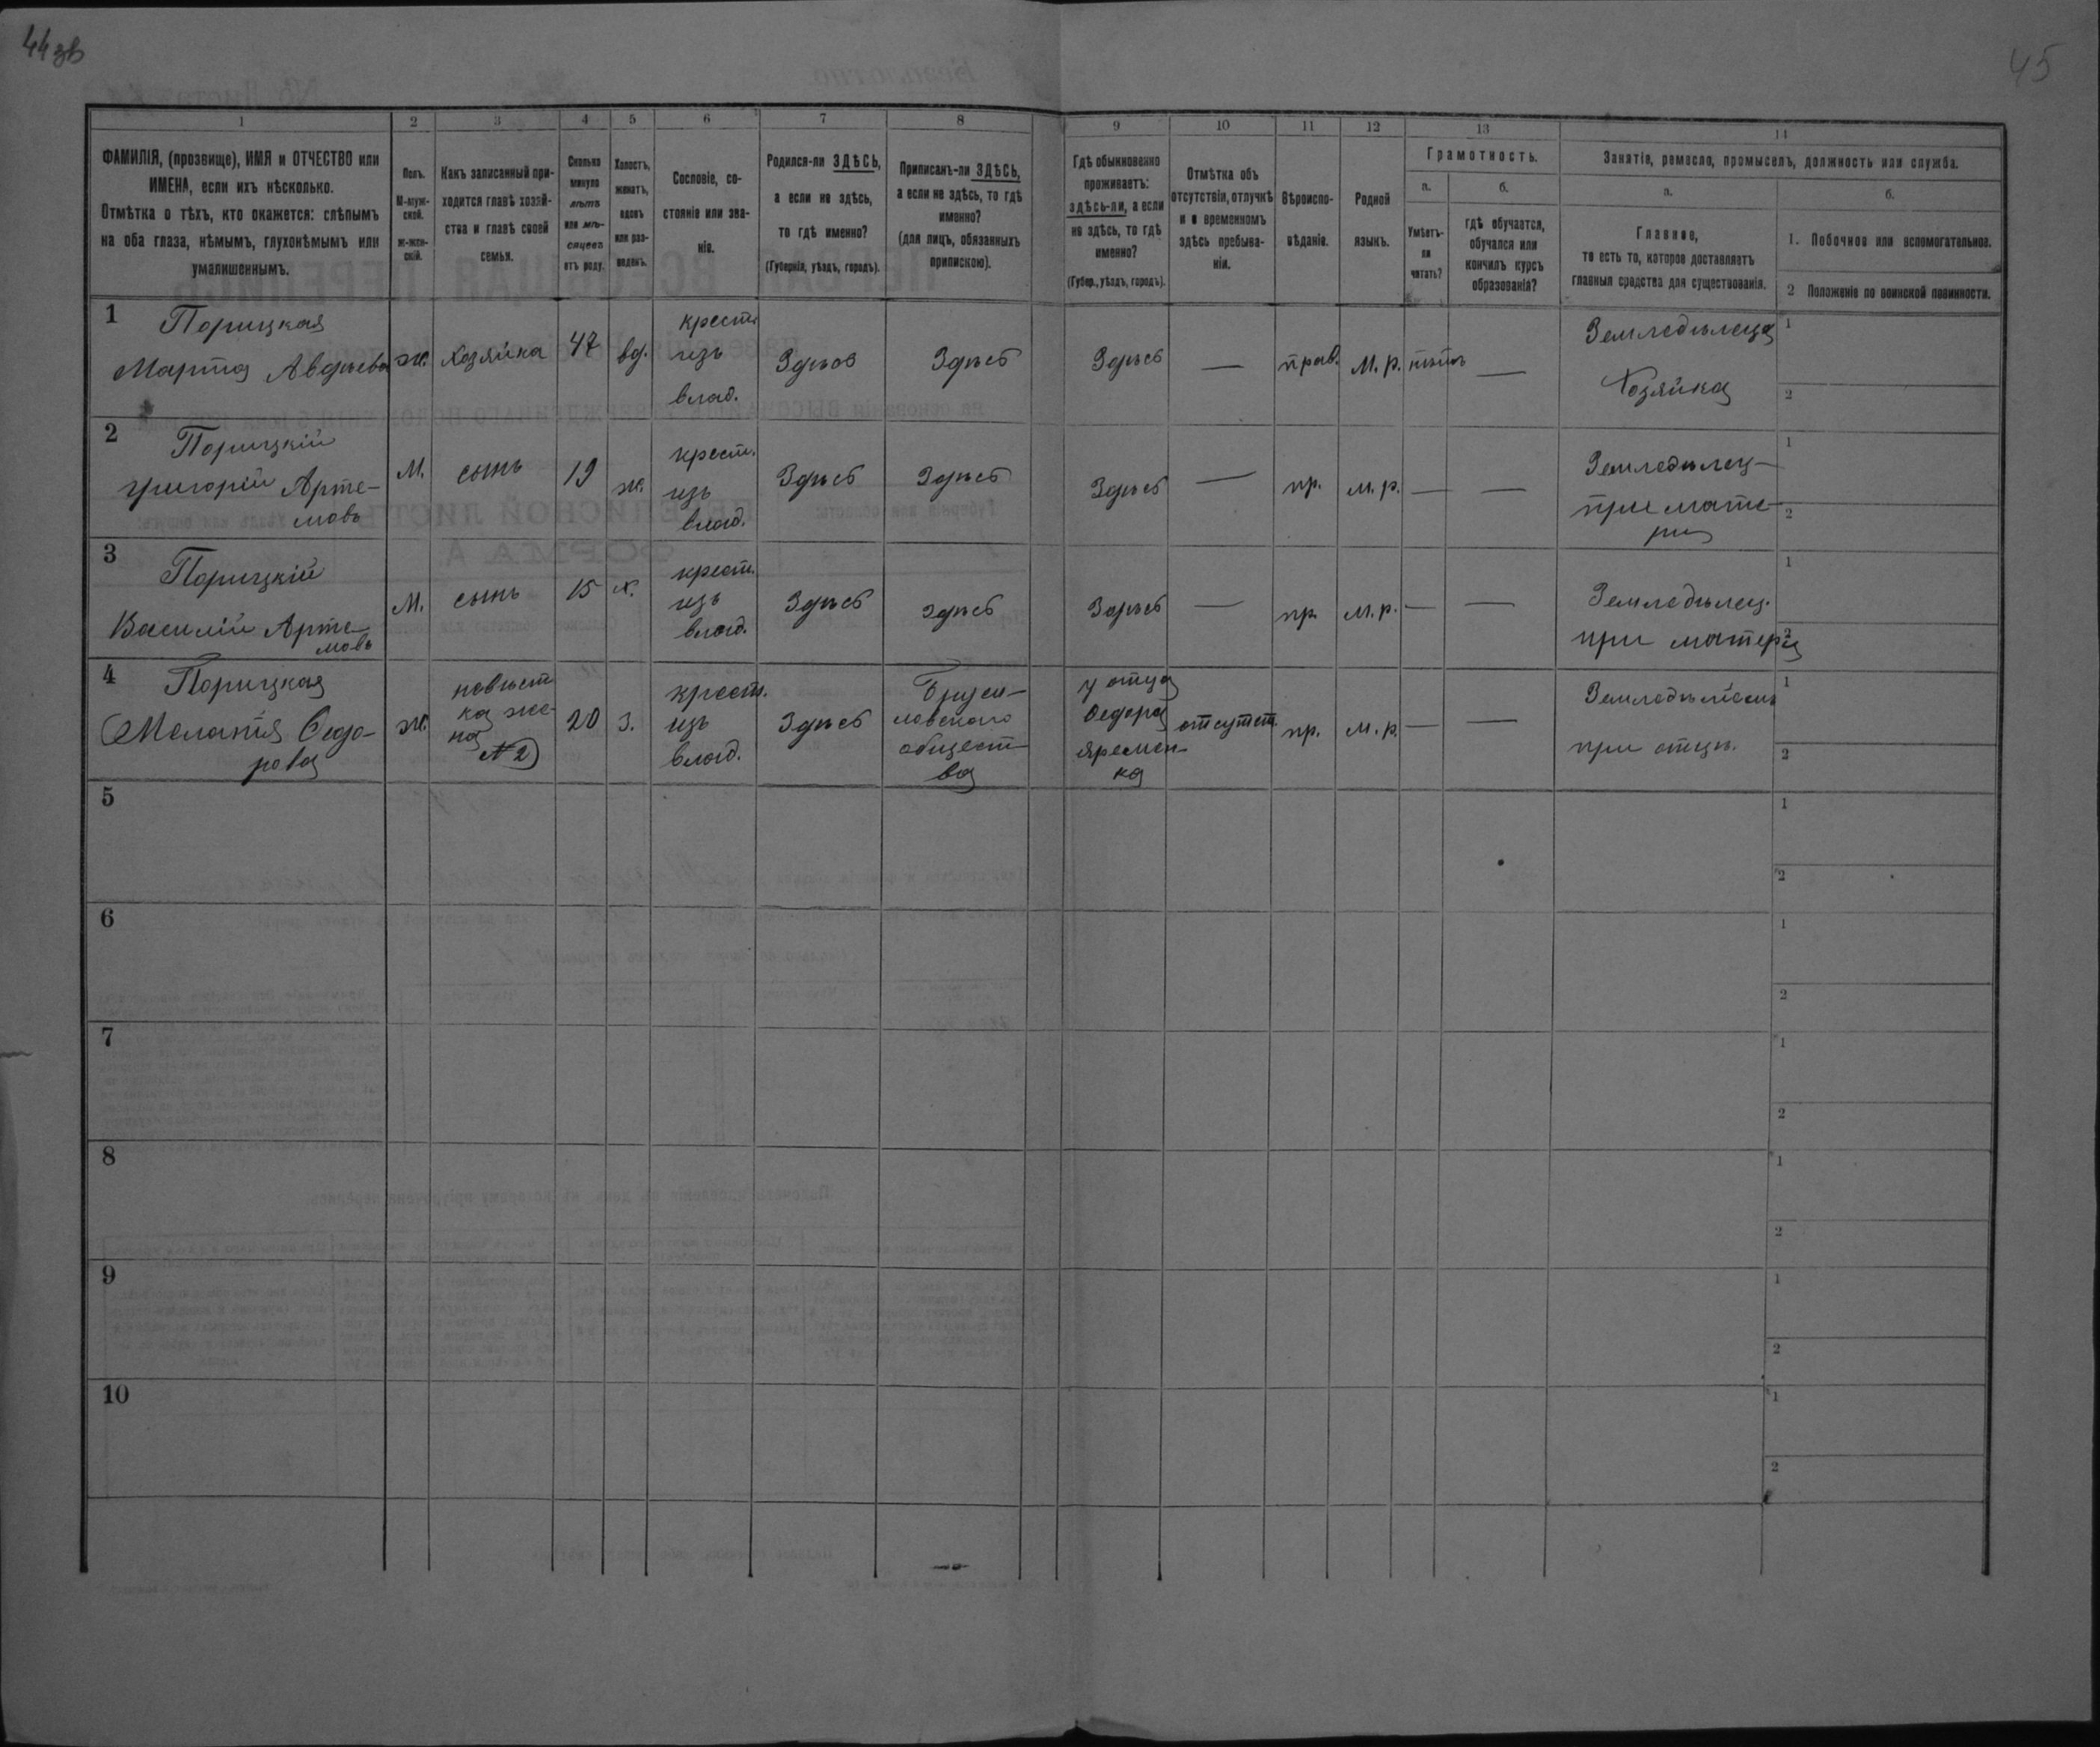 44 зв
45
1
2
3
4
5
6
7
8
9
10
11
12
13
14
ФАМИЛІЯ, (прозвище), ИМЯ и ОТЧЕСТВО или
ИМЕНА, если ихъ нѣсколько.
Отмѣтка о тѣхъ, кто окажется: слѣпымъ
на оба глаза, нѣмымъ, глухонѣмымъ или
умалишеннымъ.
Полъ.
М-муж-
ской.
Ж-жен-
скій.
Какъ записанный при-
ходится главѣ хозяй-
ства и главѣ своей
семьи.
Сколько
минуло
лѣтъ
или мѣ-
сяцевъ
отъ роду.
Холостъ,
женатъ,
вдовъ
или раз-
веденъ.
Сословіе, со-
стояніе или зва-
ніе.
Родился-ли ЗДѢСЬ,
а если не здѣсь,
то гдѣ именно?
(Губернія, уѣздъ, городъ).
Приписанъ-ли ЗДѢСЬ,
а если не здѣсь, то гдѣ
именно?
(для лицъ, обязанныхъ
припискою).
Гдѣ обыкновенно
проживаетъ:
здѣсь-ли, а если
не здѣсь, то гдѣ
именно?
(Губер., уѣздъ, городъ).
Отмѣтка объ
отсутствіи, отлучкѣ
и о временномъ
здѣсь пребыва-
ніи.
Вѣроиспо-
вѣданіе.
Родной
языкъ.
Грамотность.
а.
Умѣетъ-
ли
читать?
б.
гдѣ обучается,
обучался или
кончилъ курсъ
образованія?
Занятіе, ремесло, промыселъ, должность или служба.
а.
Главное,
то есть то, которое доставляетъ
главныя средства для существованія.
б.
1. Побочное или вспомогательное.
2 Положеніе по воинской повинности.
1
Порицкая
Марта Авдѣева
ж.
Хозяйка
47
вд.
крест.
изъ
влад.
Здѣсь
Здѣсь
Здѣсь
—
прав.
М. р.
нѣтъ
—
Земледѣлеца
Хозяйка
1
2
2
Порицкій
Григорій Арте-
мовъ
М.
сынъ
19
ж.
крест.
изъ
влад.
Здѣсь
Здѣсь
Здѣсь
—
пр.
м. р.
—
—
Земледѣлец-
при мате-
ри
1
2
3
Порицкій
Василій Арте-
мовъ
М.
сынъ
15
х.
крест.
изъ
влад.
Здѣсь
здѣсь
Здѣсь
—
пр.
м. р.
—
—
Земледѣлец.
при матери
1
2
4
Порицкая
Меланія Федо-
рова
ж.
невѣст
ка же-
на
№ 2
20
З.
крест.
изъ
влад.
Здѣсь
ловского
общест-
ва
у отца
Федора
Яремен-
ка
отсутст.
пр.
м. р.
—
—
при отцѣ.
1
2
5
1
2
6
1
2
7
1
2
8
1
2
9
1
2
10
1
2